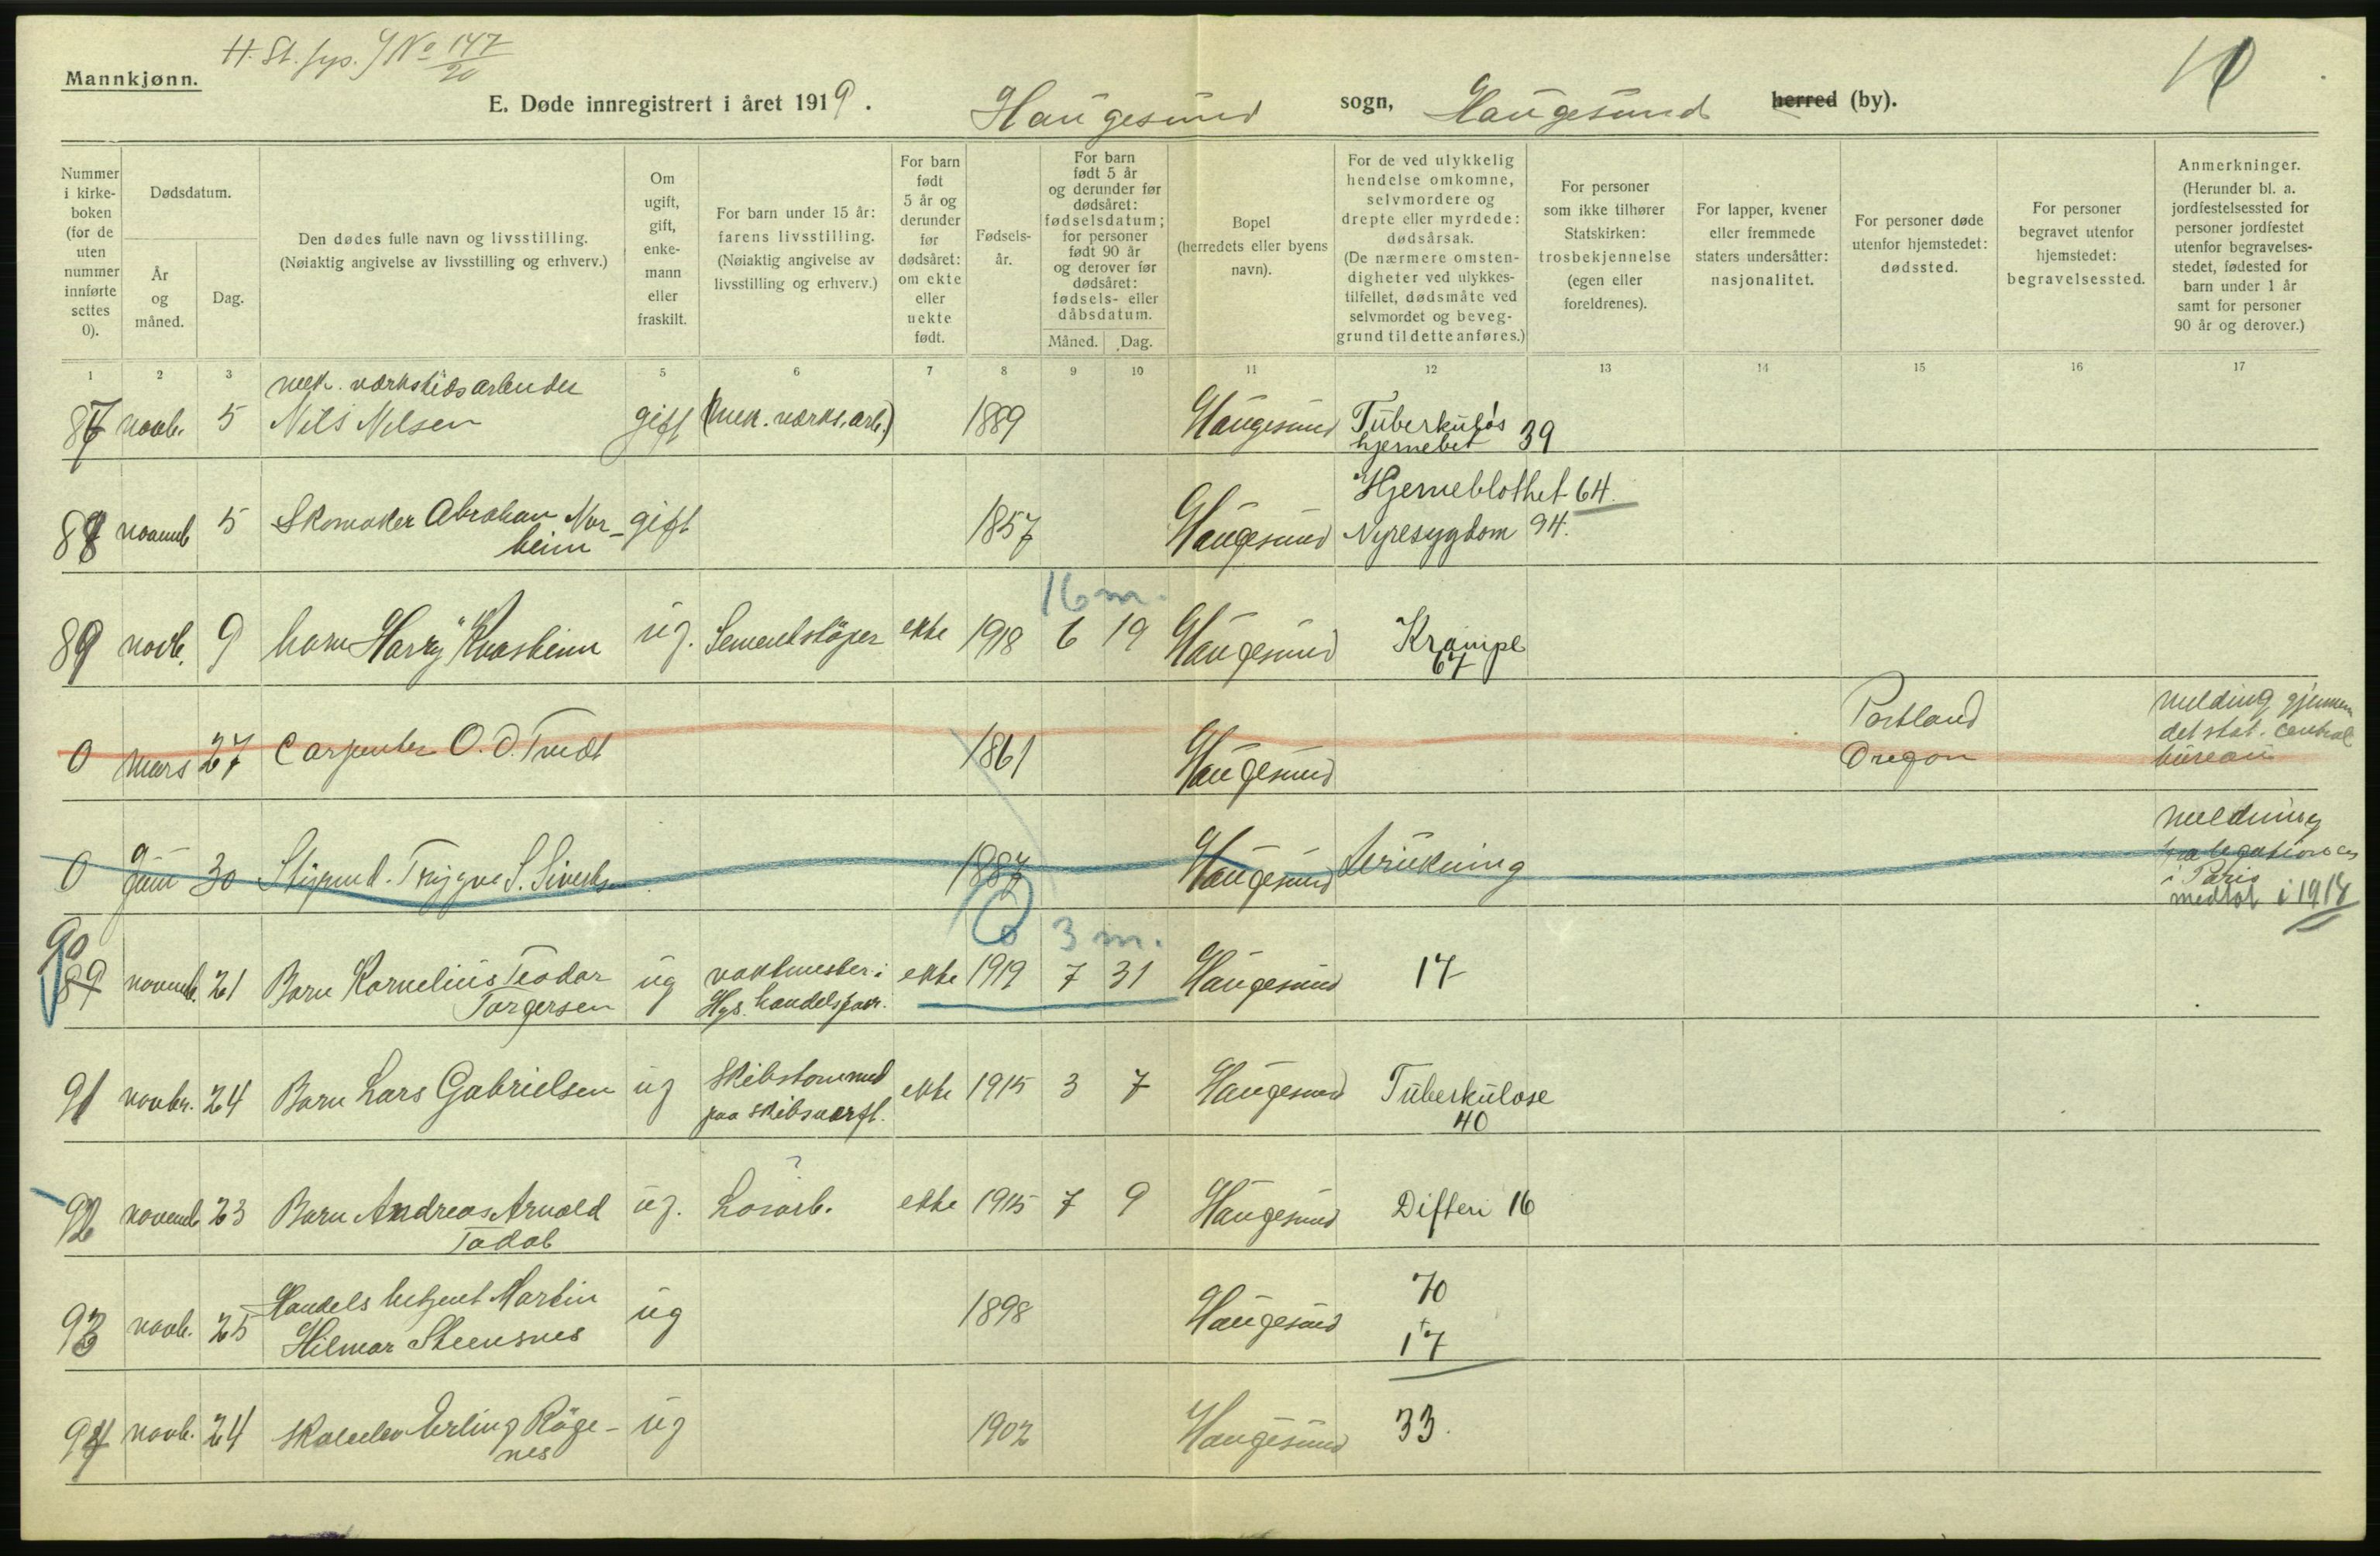 H. St. fys. J No 147/20
10
Mannkjønn.
E. Døde innregistrert i året 1919. Haugesund sogn, Haugesund herred (by).
Nummer i kirke- boken (for de uten nummer innførte settes 0).
Dødsdatum.
År og måned.
Dag.
Den dødes fulle navn og livsstilling.
(Nøiaktig angivelse av livsstilling og erhverv.)
Om ugift, gift, enke- mann eller fraskilt.
For barn under 15 år: farens livsstilling.
(Nøiaktig angivelse av livsstilling og erhverv.)
For barn født 5 år og derunder før dødsåret: om ekte eller uekte født.
Fødsels- år.
For barn født 5 år og derunder før dødsåret: fødselsdatum; for personer født 90 år og derover før dødsåret: fødsels- eller dåbsdatum.
Måned.
Dag.
Bopel (herredets eller byens navn).
For de ved ulykkelig hendelse omkomne, selvmordere og drepte eller myrdede: dødsårsak.
(De nærmere omsten- digheter ved ulykkes- tilfellet, dødsmåte ved selvmordet og beveg- grund til dette anføres.)
For personer som ikke tilhører Statskirken: trosbekjennelse (egen eller foreldrenes).
For lapper, kvener eller fremmede staters undersåtter: nasjonalitet.
For personer døde utenfor hjemstedet: dødssted.
For personer begravet utenfor hjemstedet: begravelsessted.
Anmerkninger.
(Herunder bl. a. jordfestelsessted for personer jordfestet utenfor begravelses- stedet, fødested for barn under 1 år samt for personer 90 år og derover.)
1 2 3 5 6 7 8 9 10 11 12 13 14 15 16 17
mek. værkstedsarbeider
87 novb. 5 Nils Nilsen gift (mek. værks. arb.) 1889 Haugesund Tuberkuløs
hjernebet 39
Hjerneblothet 64.
88 novemb 5 Skomaker Abraham Nor- gift 1857 Haugesund Nyresygdom 94.
heim
16 m.
89 novb. 9 barn Harry Kvasheim ug. Sementstøper ekte 1918 6 19 Haugesund Krampe
67
0 mars 27 Carpenter O. O. Tvedt 1861 Haugesund Portland
Oregon
melding gjennem
det stat. central
bureau
0 juni 30 Sigmund Trygve S. Sivertsen 1887 Haugesund Drukning
meldning
fra legationen
i Paris
medtat i 1918
90 3 m.
89 novemb. 21 Barn Kornelius Teodor ug vaktmester i ekte 1919 7 31 Haugesund 17
Torgersen Hgs. handelsfor.
91 novbr. 24 Barn Lars Gabrielsen ug skibstømmerm. ekte 1915 3 7 Haugesund Tuberkulose
paa skibsverft. 40
?
92 novemb 23 Barn Andreas Arnold ug. Løsarb. ekte 1915 7 9 Haugesund Difteri 16
Handels betjent Martin 70
93 novb. 25 Hilmar Steensnes ug 1898 Haugesund +
17
94 novb. 24 skoleelev Erling Røge- ug 1902 Haugesund 33.
nes